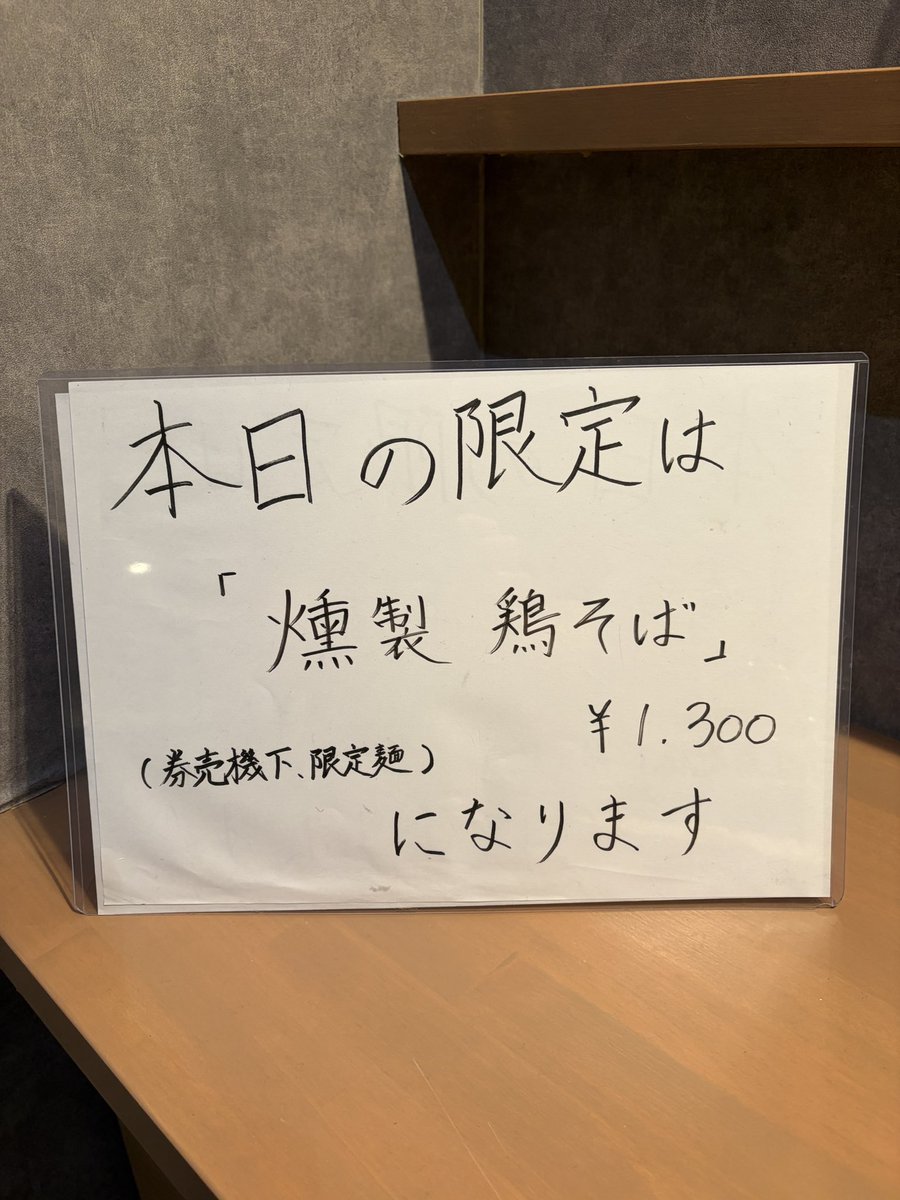 本日の限定は
「燻製 鶏そば」
¥1.300
(券売機下、限定麺)
になります